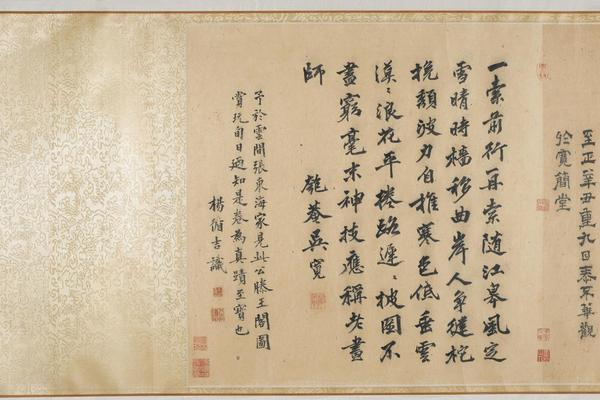 至正辛丑重九日泰不華觀
於簡堂
一索前行再索隨江皋風定
雪晴時檣移曲岸人爭健柁
挽頹波力自推寒色低垂雲
漠〻浪花平捲路遲〻披圖不
盡窮毫末神技應稱老畫
師
匏菴吳寬
予於雲間張東海家見此公滕王閣圖
賞玩旬日迺知是卷為真蹟至寶也
楊循吉識